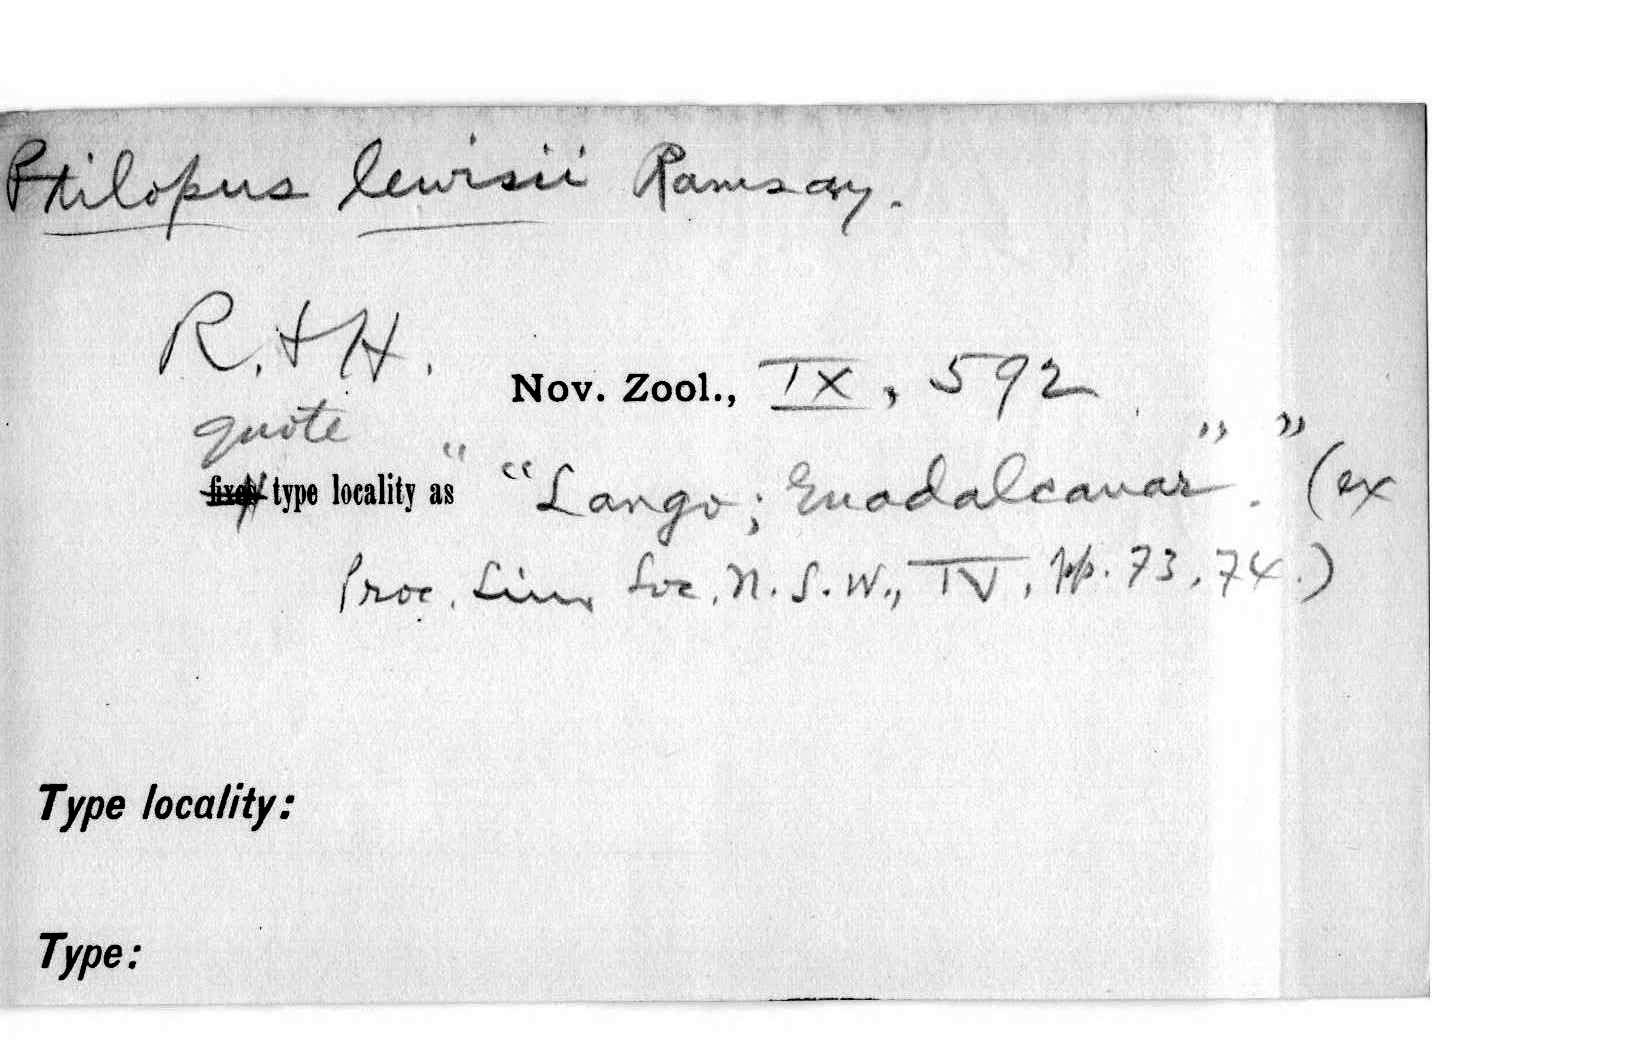 Ptilopus lewisii Ramsay.
R. + H.
Nov. Zool., IX, 592
quote
fixes type locality as " "Lango; Guadalcanar". " (ex
Proc. Linn Soc. N. S. W., IV, pp. 73, 74.)
Type locality:
Type: